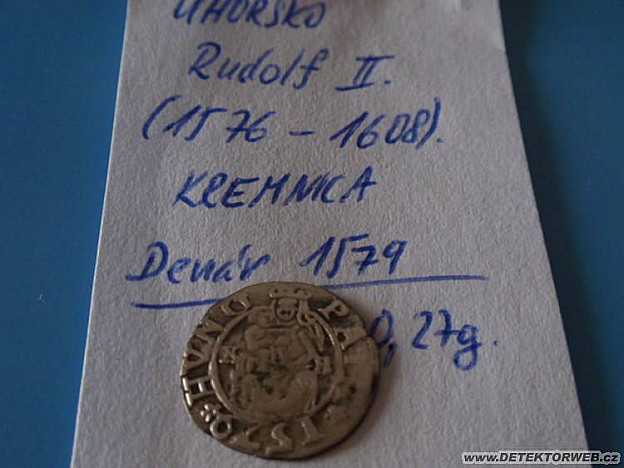 UHORSKO
Rudolf II.
(1576 – 1608).
KREMNICA
Denár 1579
0,27g.
PA
HVNG
1579
K B
www.DETEKTORWEB.cz